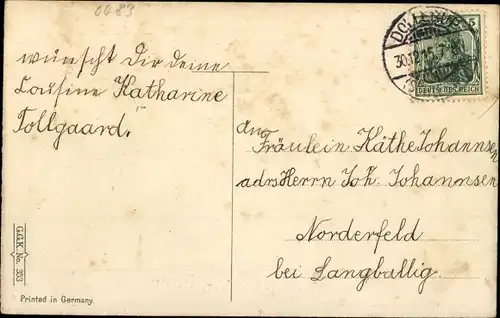 0083
wünscht Dir deine
Cousine Katharine
Tollgaard.
an
Fräulein Käthe Johannsen
adrs Herrn Joh. Johannsen
Norderfeld
bei Langballig.
30.12.15.
5
DEUTSCHES REICH
G.G.K. No. 353
Printed in Germany.